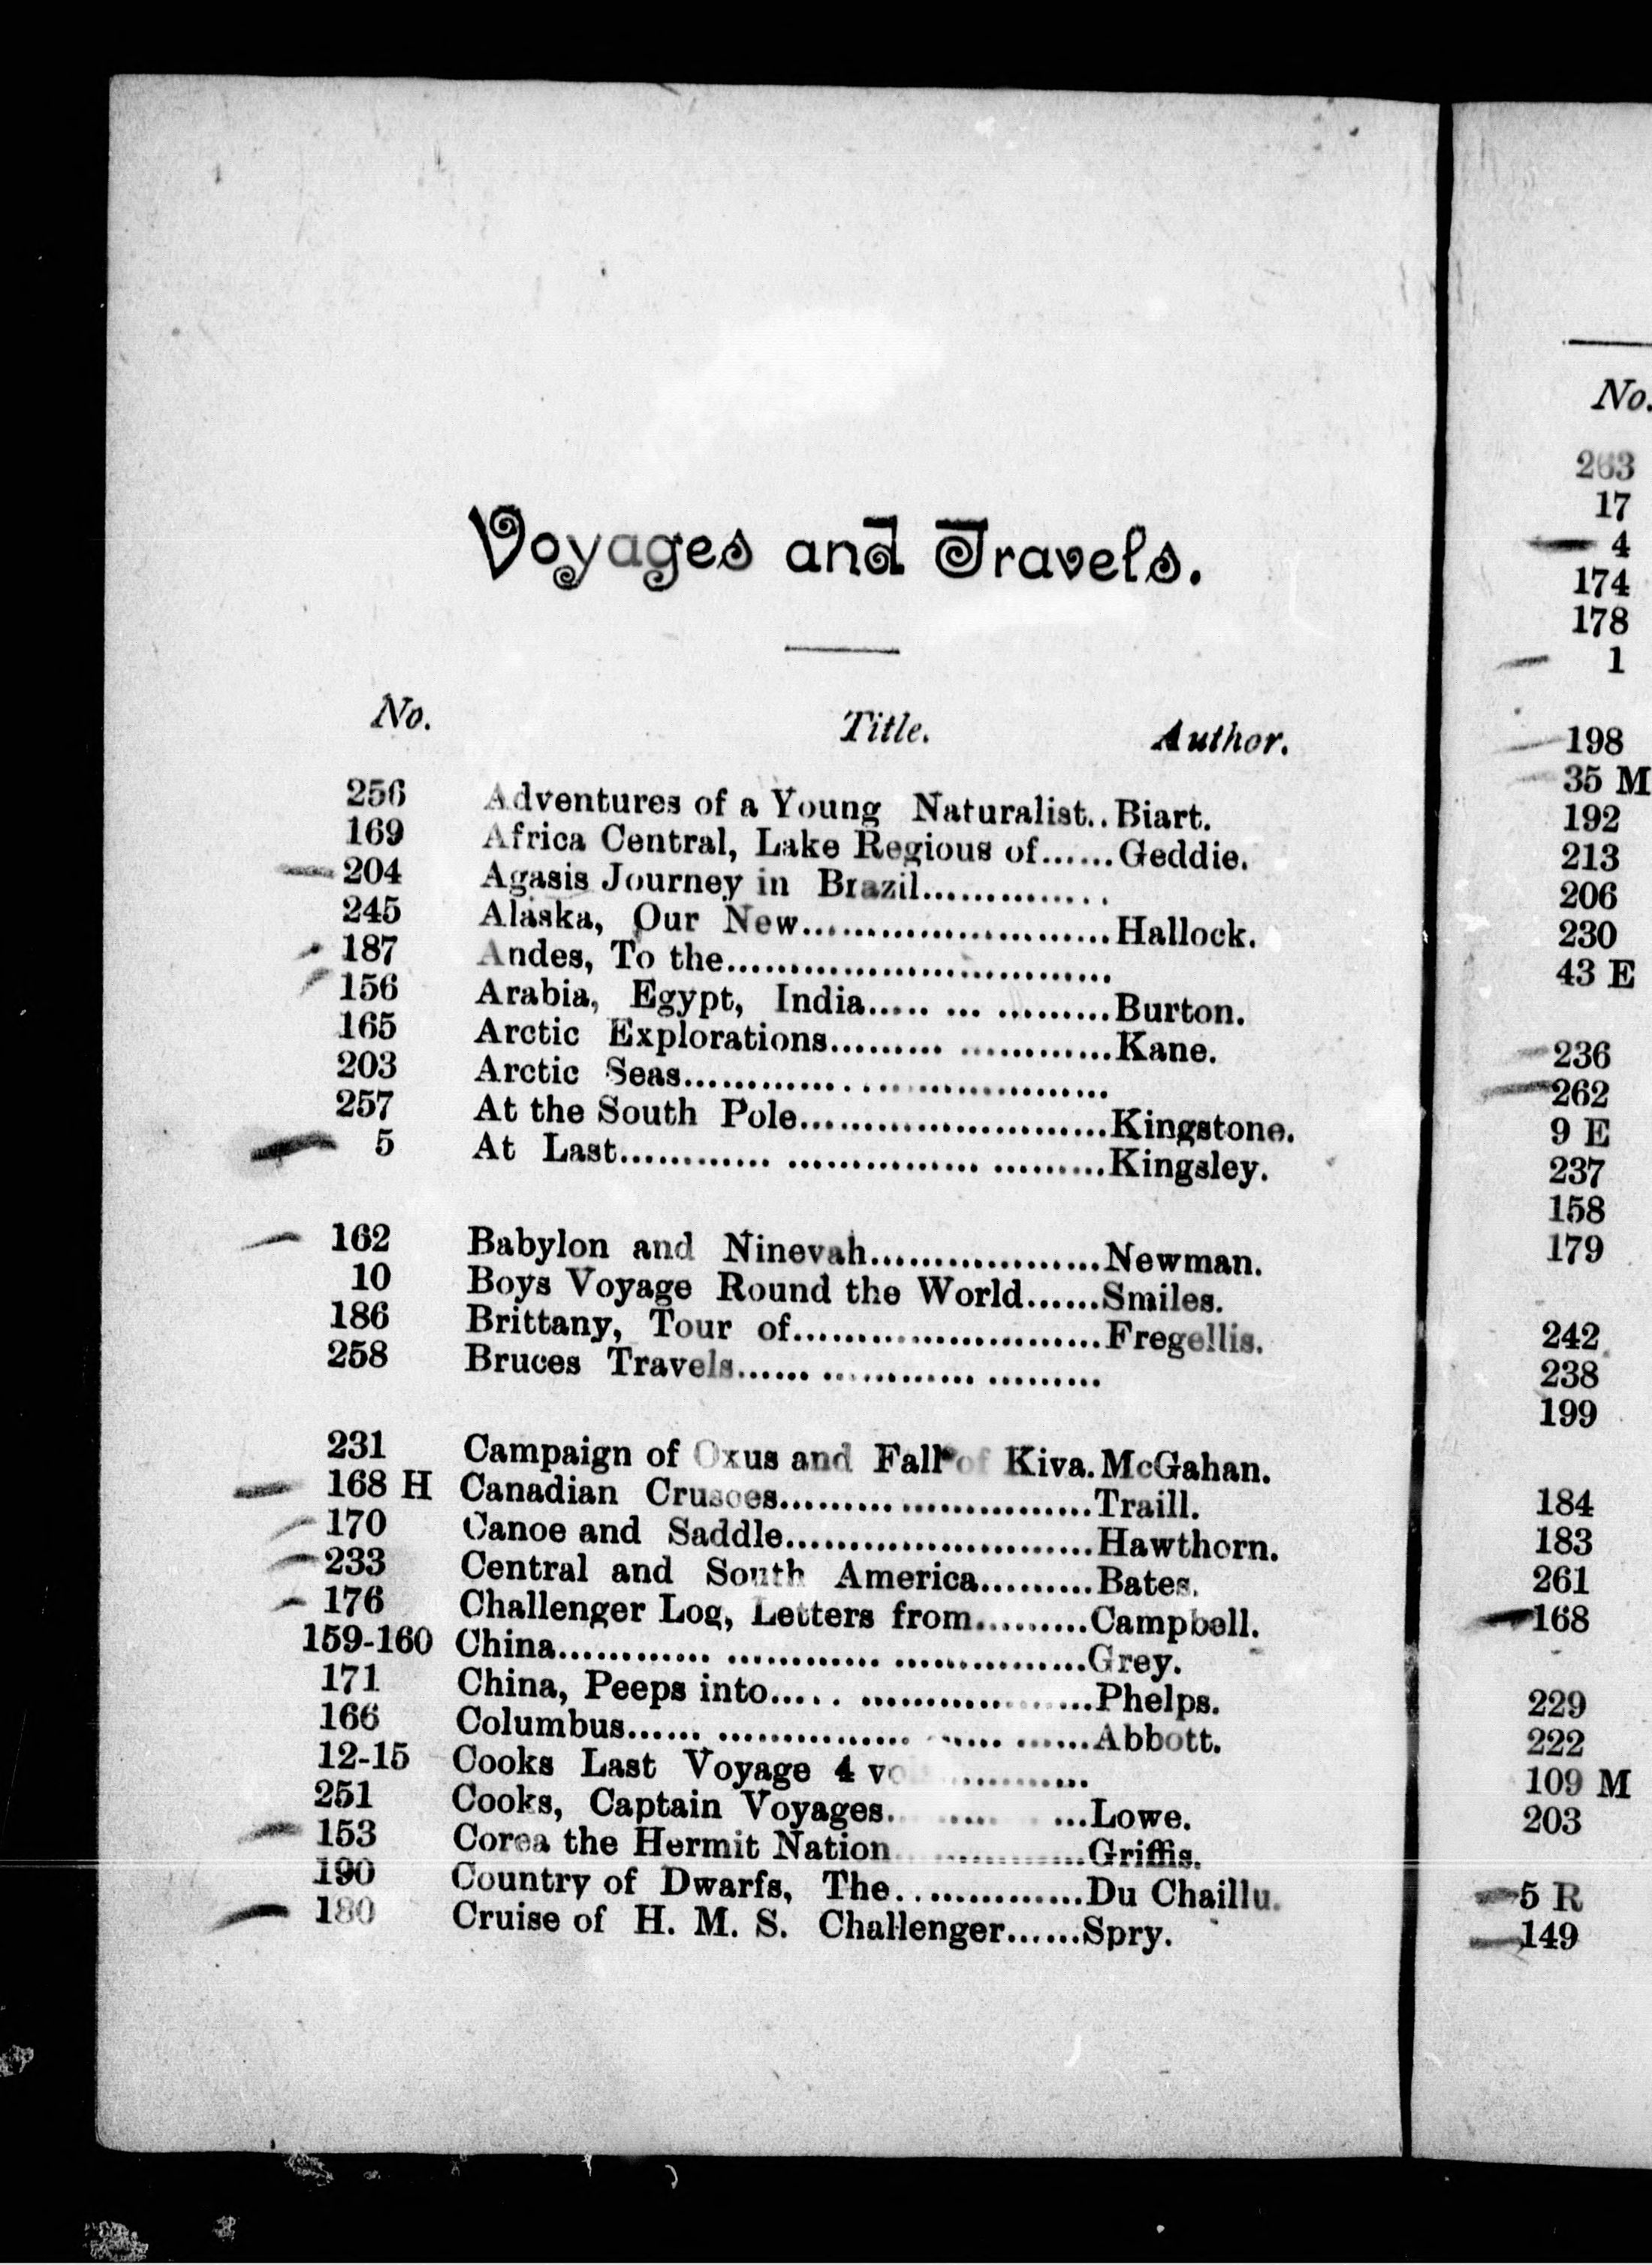 Voyages and Travels.
No. Title. Author.
256 Adventures of a Young Naturalist..Biart.
169 Africa Central, Lake Regious of......Geddie.
204 Agasis Journey in Brazil..............
245 Alaska, Our New........................Hallock.
187 Andes, To the..............................
156 Arabia, Egypt, India..... ... .........Burton.
165 Arctic Explorations......... ............Kane.
203 Arctic Seas.................................
257 At the South Pole........................Kingstone.
5 At Last............ ............... .........Kingsley.
162 Babylon and Ninevah..................Newman.
10 Boys Voyage Round the World......Smiles.
186 Brittany, Tour of........................Fregellis.
258 Bruces Travels...... ............ .........
231 Campaign of Oxus and Fall of Kiva.McGahan.
168 H Canadian Crusoes........................Traill.
170 Canoe and Saddle........................Hawthorn.
233 Central and South America.........Bates.
176 Challenger Log, Letters from.........Campbell.
159-160 China............ ............ ...............Grey.
171 China, Peeps into..... ..................Phelps.
166 Columbus...... ............... ...... ......Abbott.
12-15 Cooks Last Voyage 4 ............
251 Cooks, Captain Voyages. ..... ...Lowe.
153 Corea the Hermit Nation...............Griffis.
190 Country of Dwarfs, The...............Du Chaillu.
180 Cruise of H. M. S. Challenger......Spry.
No.
263
17
4
174
178
1
198
35 M
192
213
206
230
43 E
236
262
9 E
237
158
179
242
238
199
184
183
261
168
229
222
109 M
203
5 R
149